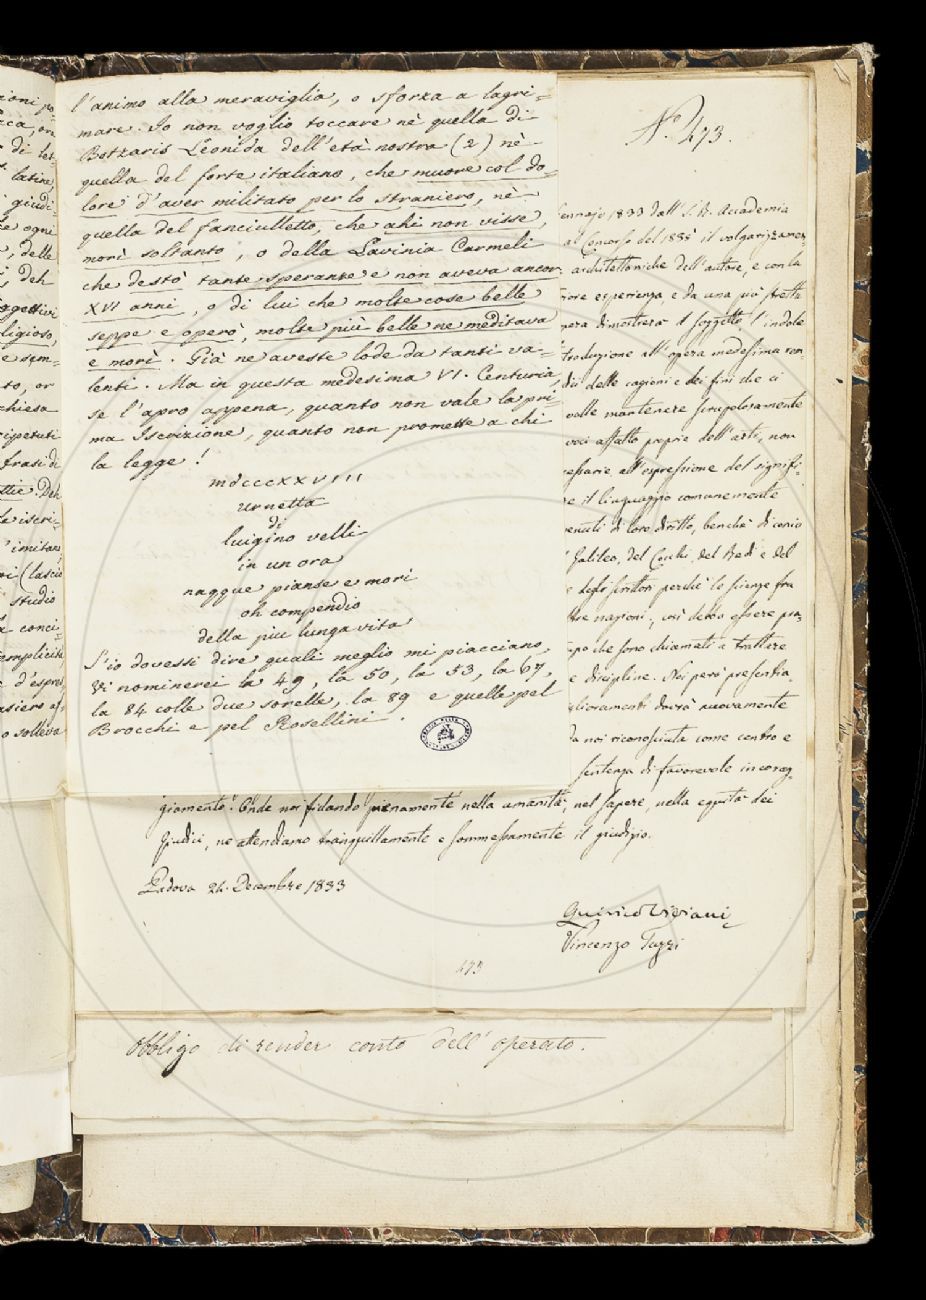 l'animo alla meraviglia, o sforza a lagri=
mare. Io non voglio toccare nè quella di
Botzaris Leonida dell'età nostra (2) nè
quella del forte italiano, che muore col do=
lore d'aver militato per lo straniero, nè
quella del fanciulletto, che ahi non visse,
morì soltanto, o della Lavinia Carmeli
che destò tante speranze e non aveva ancor
XVI anni, o di lui che molte cose belle
seppe e operò, molte più belle ne meditava
e morì. Già ne aveste lode da tanti va=
lenti. Ma in questa medesima VI. Centuria,
se l'apro appena, quanto non vale la pri=
ma Iscrizione, quanto non promette a chi
la legge!
mdcccXXVIII
urnetta
di
luigino velli
in un ora
nacque pianse e morì
oh compendio
della piu lunga vita
S'io dovessi dire quali meglio mi piacciano,
Vi nominerei la 49, la 50, la 53, la 67,
la 84 colle due sorelle, la 89 e quelle pel
Brocchi e pel Rosellini.
N.° 473.
ennajo 1833 dall' I. R. Accademia
al Concorso del 1835 il volgarizzamen=
architettoniche dell'autore, e con la
iore esperienza, e da una più stretta
pera dimostrerà il soggetto l'indole
troduzione all'opera medesima ren
più delle cagioni e dei fini che ci
volle mantenere scrupolosamente
voci affatto proprie dell'arte, non
cessarie all'espressione del signifi=
e il linguaggio comunemente
venuti di loro diritto, benchè di conio
Galileo, del Cocchi, del Redi e del
degli scrittori perchè le scienze fra
tre nazioni, così debbo essere pra=
po che sono chiamati a trattare
e discipline. Noi però presentia
glioramenti dovrà nuovamente
da noi riconosciuta come centro e
sentenza di favorevole incorag
giamento. Onde noi fidando pienamente nella umanità, nel sapere, nella equità dei
Giudici, ne attendiamo tranquillamente e sommessamente il giudizio.
Padova 24. Decembre 1833
Quirico Viviani
Vincenzo Tuzzi
473
obbligo di render conto dell'operato.
zioni po=
di let
latine,
giudi=
e ogni
, delle
deh
ggettivi
ligioso,
e sem=
to, or
chiesa
ripetuti
frasi di
Deh
le iscri=
imitare
ri (lascio
studio
a conci=
emplicità
d'espres
nsiero
o solleva